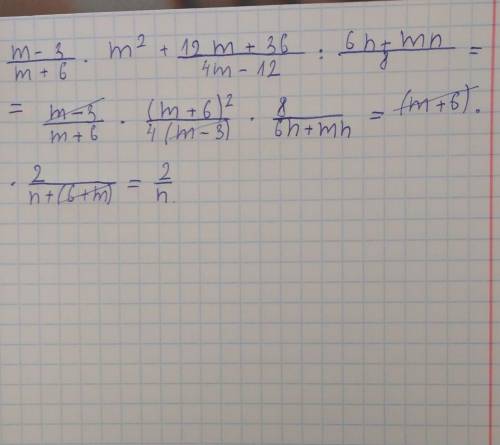 (m - 3)/(m + 6) · m² + (12m + 36)/(4m - 12) : (6n + mn)/8 =
= (m - 3)/(m + 6) · (m + 6)²/(4(m - 3)) · 8/(6n + mn) = (m + 6) ·
· 2/(n + (6 + m)) = 2/n